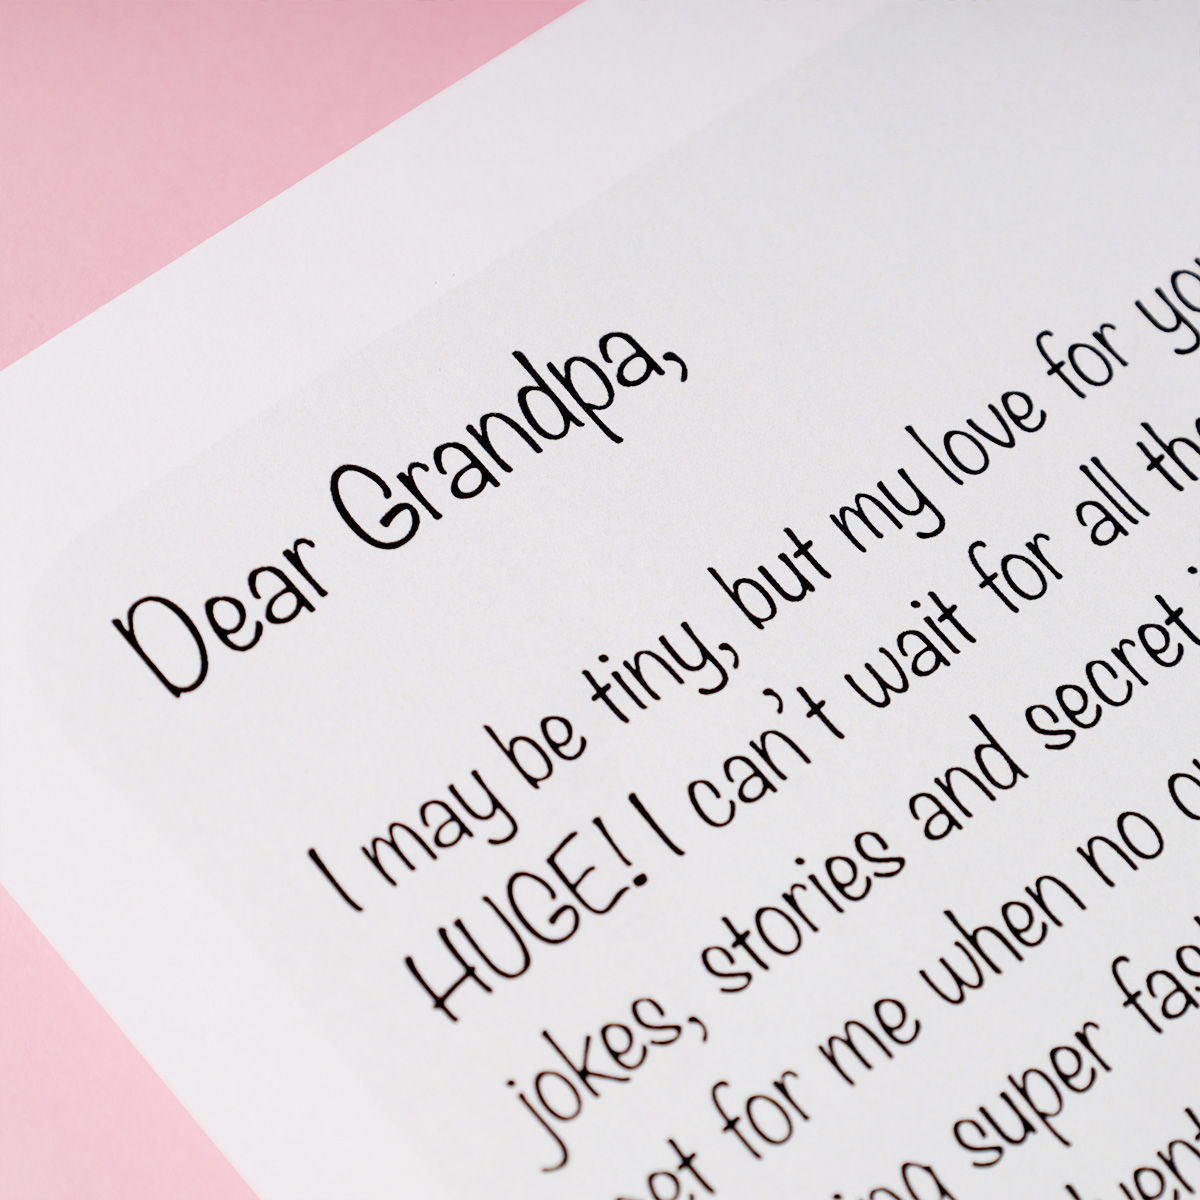 Dear Grandpa,
I may be tiny, but my love for
HUGE! I can't wait for all
jokes, stories and secret
for me when no
super